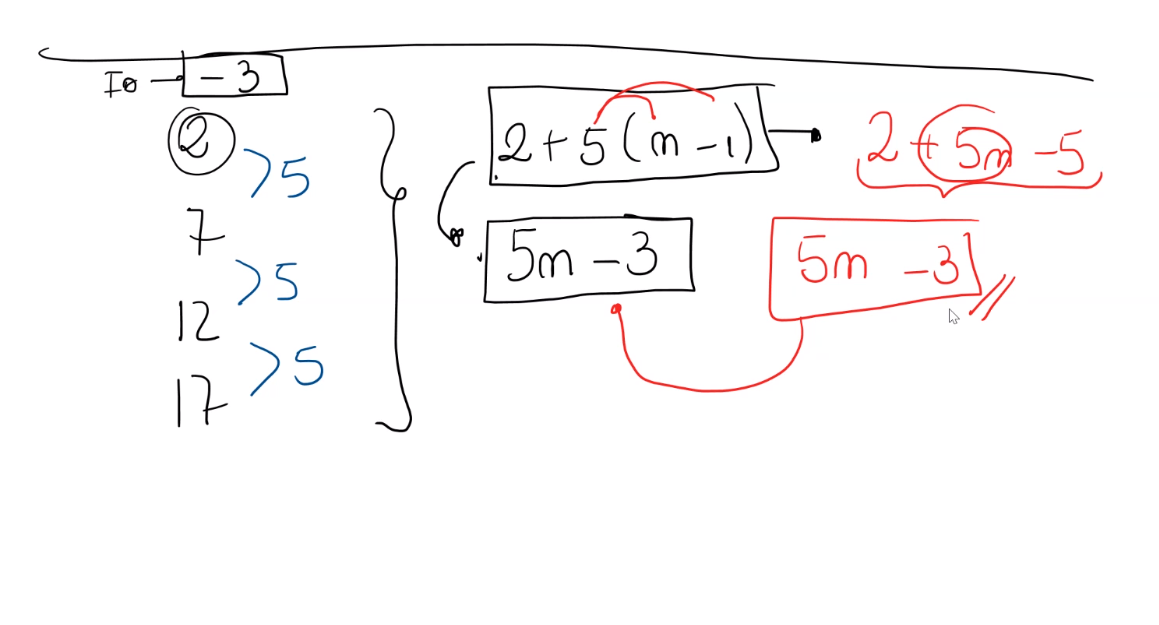 I0 → - 3
2
> 5
7
> 5
12
> 5
17
2 + 5 (m - 1)
2 + 5m - 5
5m - 3
5m - 3